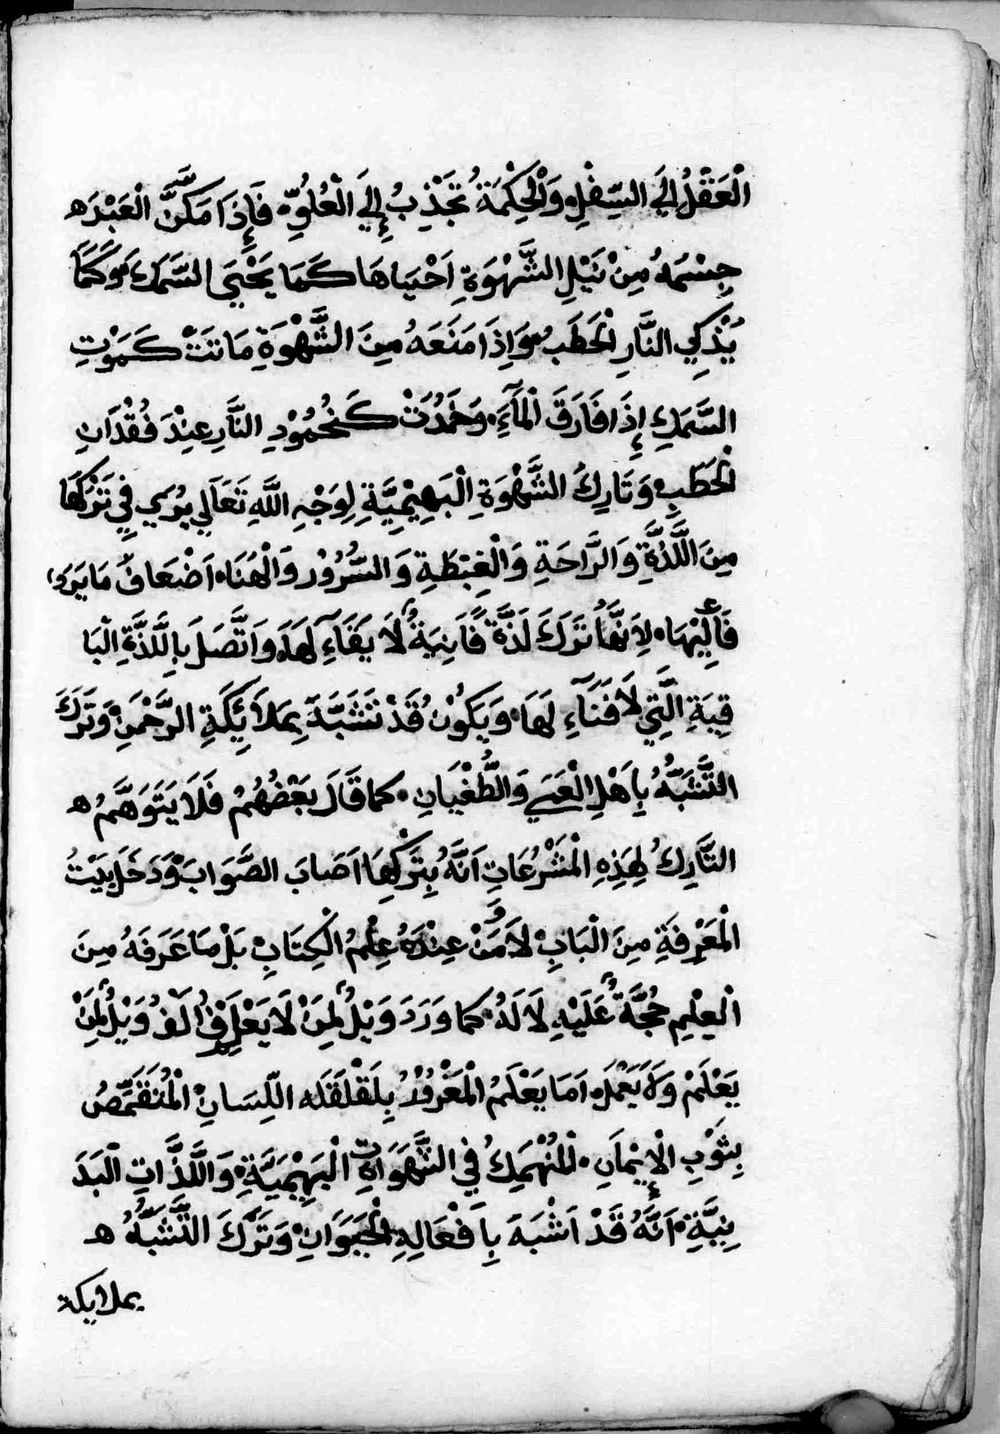 الْعَقْلُ إِلَي السِّفْلِ وَالْحِكْمَةُ تَجْذِبُ إِلَي الْعُلُوِّ فَإِذَا مَكَّنَ الْعَبْدَ ه
جِسْمَهُ مِنْ نَيْلِ الشَّهْوَةِ اَحْيَاهَا كَمَا يَحْيَي السَّمَكُ وَكَمَا
يُذْكِي النَّارِ الْحَطَبُ وَإِذَا مَنَعَهُ مِنَ الشَّهْوَةِ مَاتَتْ كَمَوْتِ
السَّمَكِ إِذَا فَارَقَ الْمَآءِ وَخَمَدَتْ كَخُمُوْدِ النَّارِ عِنْدَ فُقْدَانِ
الْحَطَبِ وَتَارِكُ الشَّهْوَةِ الْبَهِيْمِيَّةِ لِوَجْهِ اللَّهِ تَعَالَي يُرَي فِي تَرْكِهَا
مِنَ اللَّذَّةِ وَالرَّاحَةِ وَالْغِبْطَةِ وَالسُّرُوْرِ وَالْهَنَا اَضْعَافَ مَا يَرَي
فَاعِلِيْهَا لِاَنَّهَا تَرَكَ لَذَّةً فَانِيَةً لَا بَقَآءِ لَهَا وَاتَّصَلَ بِاللَّذَّةِ الْبَا
قِيَةِ الَّتِي لَا فَنَآءِ لَهَا وَيَكُوْنُ قَدْ تَشَبَّهَ بِمَلَائِكَةِ الرَّحْمَنِ وَتَرَكَ
التَّشَبُّهُ بِاَهْلِ الْعَمَي وَالطُّغْيَانِ كَمَا قَالَ بَعْضُهُمْ فَلَا يَتَوَهَّمُ ه
التَّارِكُ لِهَذِهِ الْمَشْرُعَاتِ اَنَّهُ بِتَرْكِهَا اَصَابَ الصَّوَابَ وَدَخَلَ بَيْتَ
الْمَعْرِفَةِ مِنَ الْبَابِ لَا وَمَنْ عِنْدَهُ عِلْمُ الْكِتَابِ بَلْ مَا عَرَفَهُ مِنَ
الْعِلْمِ حُجَّةٌ عَلَيْهِ لَا لَهُ كَمَا وَرَدَ وَيْلٌ لِمَنْ لَا يَعْلَمُ اَلْفُ وَيْلٌ لِمَنْ
يَعْلَمْ وَلَا يَعْمَلُ اَمَا يَعْلَمُ الْمَغْرُوْرُ بِلَقْلَقَلَه اللِّسَانِ الْمُتَقَمِّصُ
بِثَوْبِ الْاِيْمَانِ الْمُنْهَمِكُ فِي الشَّهَوَاتِ الْبَهِيْمِيَّةِ وَاللَّذَّاتِ الْبَدَ
نِيَّةِ اَنَّهُ قَدْ اَشْبَهَ بِاَفْعَالِهِ الْحَيَوَانِ وَتَرَكَ التَّشَبُّهُ ه
بملايكة